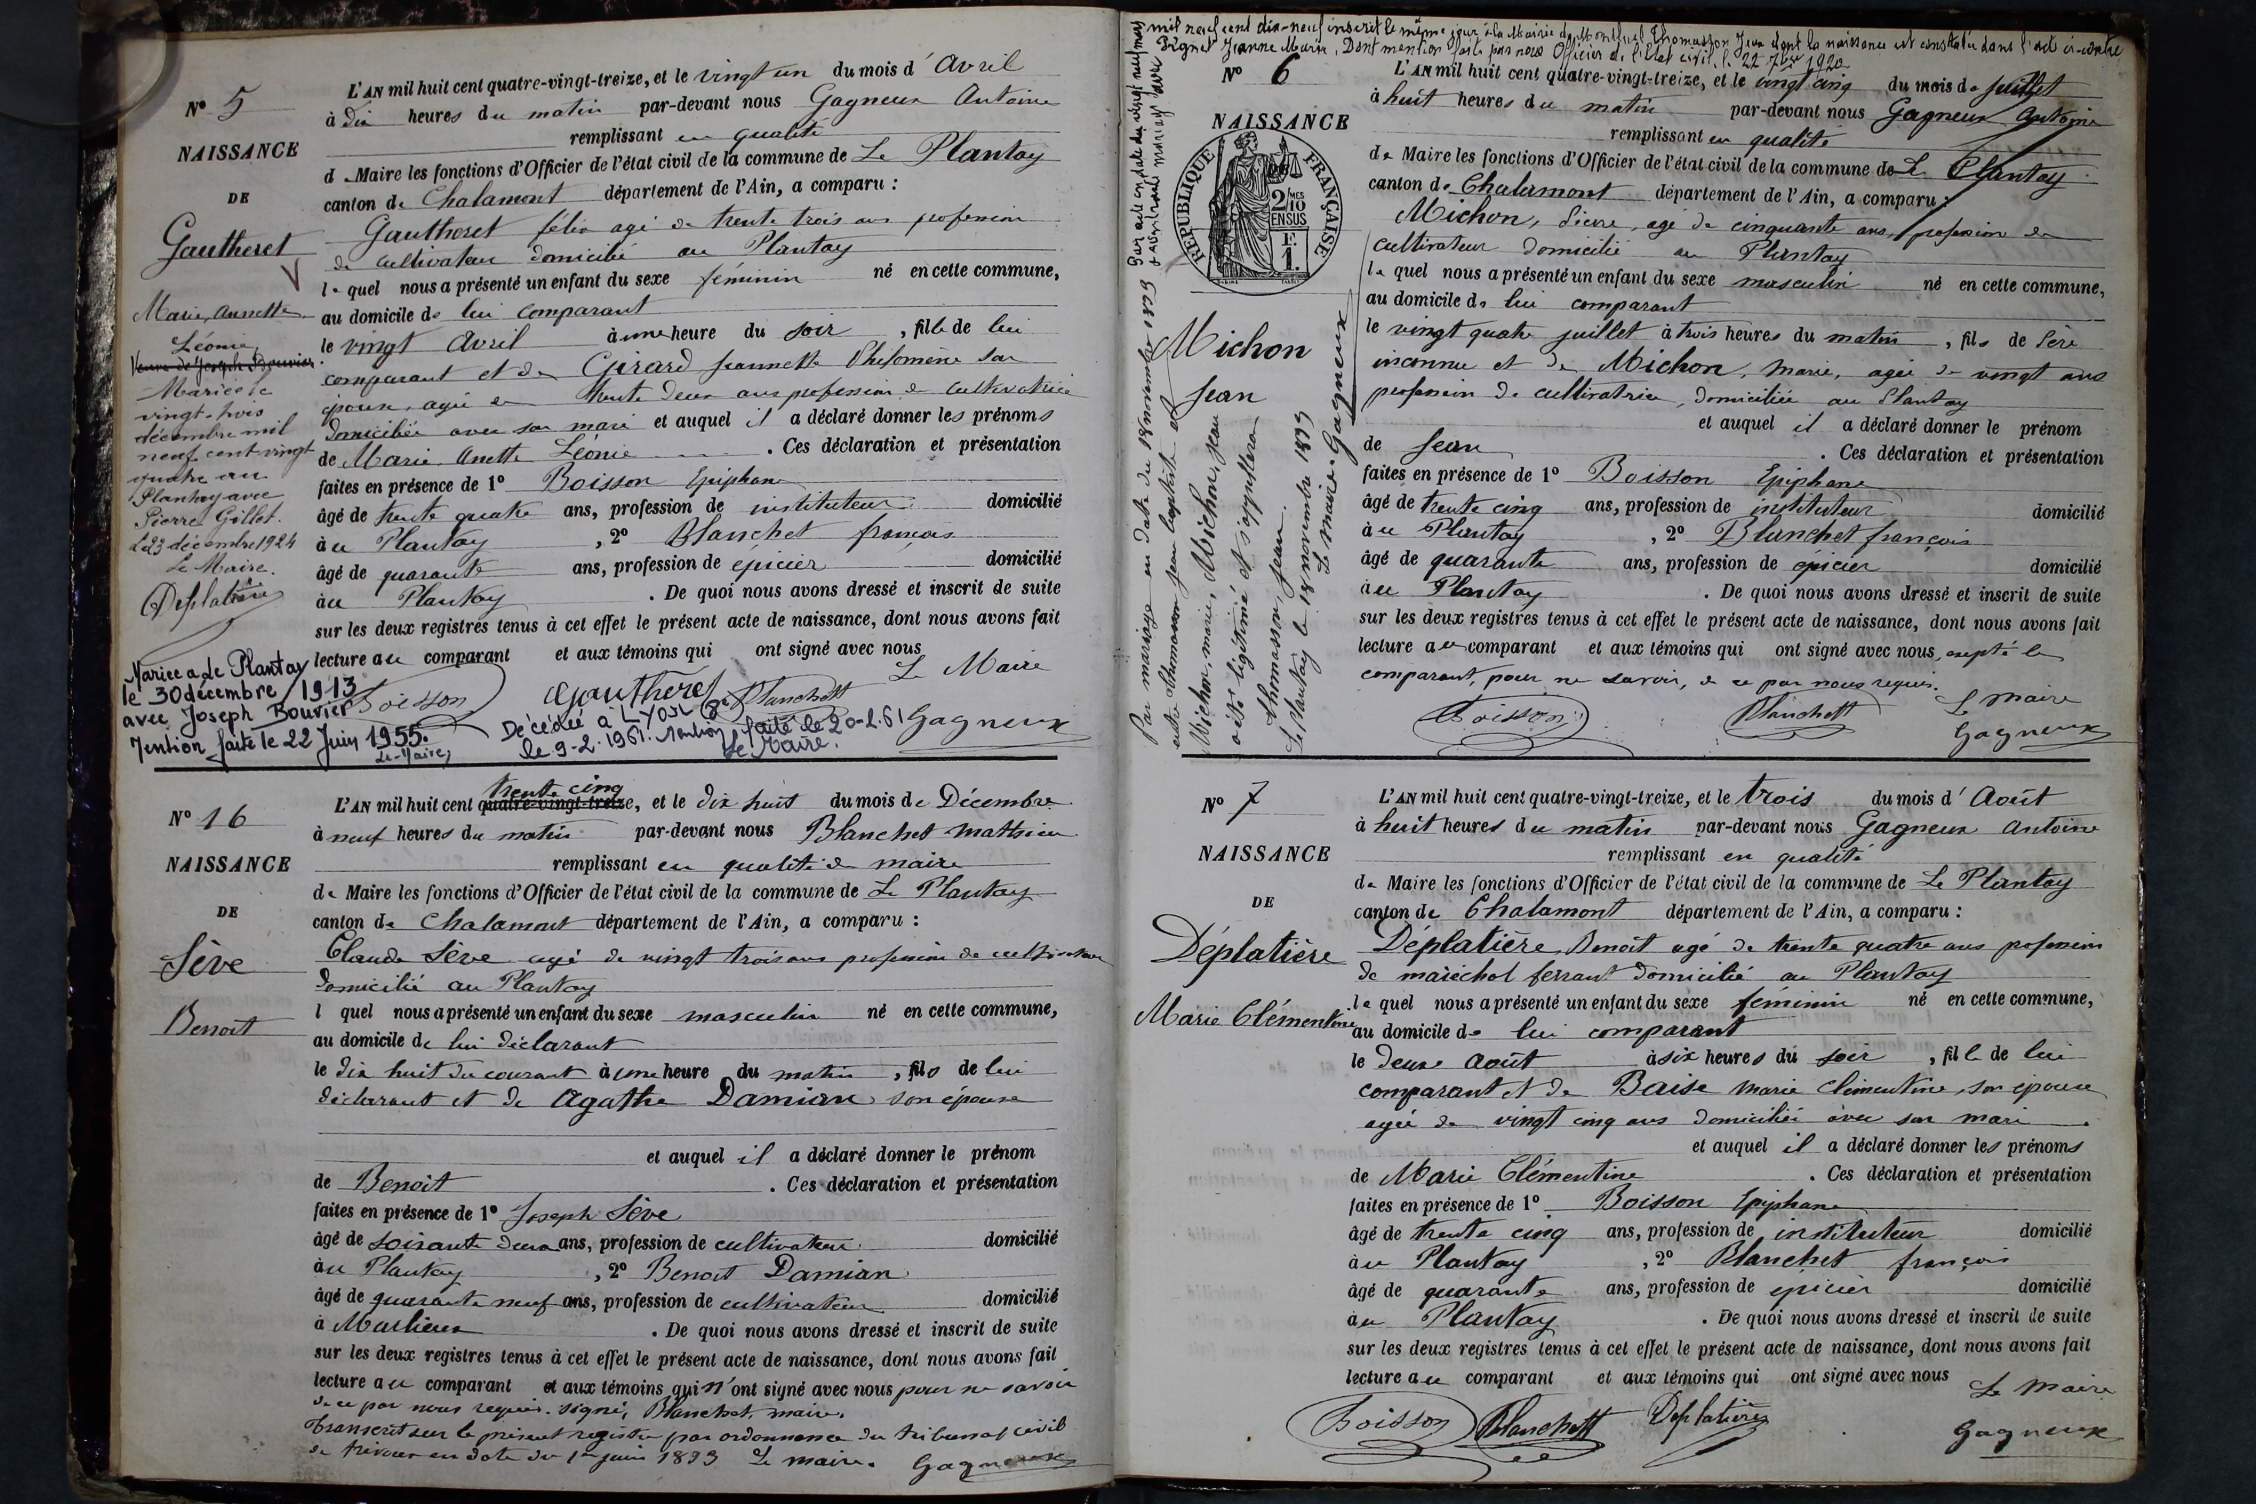 L'AN mil huit cent quatre-vingt-treize, et le vingt un du mois d'Avril
N° 5
à dix heures du matin par-devant nous Gagneux Antoine
remplissant en qualité
NAISSANCE
de Maire les fonctions d'Officier de l'état civil de la commune de Le Plantay
DE
canton de Chalamont département de l'Ain, a comparu :
Gautheret
Gautheret félix agé de trente trois ans profession
de cultivateur domicilié au Plantay
le quel nous a présenté un enfant du sexe féminin né en cette commune,
Marie, Annette
au domicile de lui comparant
Léonie
le vingt Avril à une heure du soir, fille de lui
Veuve de Joseph Bouvier
comparant et de Girard Jeannette Philomène son
épouse, agée de trente deux ans profession de cultivatrice
domiciliée avec son mari et auquel il a déclaré donner les prénoms
de Marie Anette Léonie. Ces déclaration et présentation
faites en présence de 1° Boisson Epiphane
âgé de trente quatre ans, profession de instituteur domicilié
au Plantay, 2° Blanchet françois
âgé de quarante ans, profession de épicier domicilié
au Plantay. De quoi nous avons dressé et inscrit de suite
sur les deux registres tenus à cet effet le présent acte de naissance, dont nous avons fait
lecture au comparant et aux témoins qui ont signé avec nous
Le Maire
Boisson Gautheret Blanchett Gagneux
Mariée le
vingt-trois
décembre mil
neuf cent vingt
quatre au
Plantay avec
Pierre Gillet.
Le 23 décembre 1924
Le Maire.
Déplatière
Mariée a Le Plantay
le 30 décembre 1913
avec Joseph Bouvier
Mention faite le 22 Juin 1955.
Le Maire,
Décédée a LYON
le 9-2-1961. Mention faite le 20-2-61
Le Maire.
trente cinq
L'AN mil huit cent quatre-vingt-treize, et le dix huit du mois de Décembre
N° 16
à neuf heures du matin par-devant nous Blanchet Mathieu
NAISSANCE
remplissant en qualité de maire
de Maire les fonctions d'Officier de l'état civil de la commune de Le Plantay
DE
canton de Chalamont département de l'Ain, a comparu :
Sève
Claude Sève agé de vingt trois ans profession de cultivateur
domicilié au Plantay
Benoit
l quel nous a présenté un enfant du sexe masculin né en cette commune,
au domicile de lui déclarant
le dix huit du courant à une heure du matin, fils de lui
déclarant et de Agathe Damian son épouse
et auquel il a déclaré donner le prénom
de Benoit. Ces déclaration et présentation
faites en présence de 1° Joseph Sève
âgé de soixante deux ans, profession de cultivateur domicilié
au Plantay, 2° Benoit Damian
âgé de quarante neuf ans, profession de cultivateur domicilié
à Marlieux. De quoi nous avons dressé et inscrit de suite
sur les deux registres tenus à cet effet le présent acte de naissance, dont nous avons fait
lecture au comparant et aux témoins qui n'ont signé avec nous pour ne savoir
de ce par nous requis. signé, Blanchet, maire.
Transcrit sur le présent registre par ordonnance du tribunal civil
de Trévoux en date du 1er juin 1893 Le maire. Gagneux
Par acte en date du vingt neuf mars
mil neuf cent dix-neuf inscrit le même jour à la Mairie de Montluel Thomasson Jean dont la naissance est constatée dans l'acte ci-contre
a contracté mariage avec
Pignet Jeanne Marie, Dont mention faite par nous Officier de l'état civil, le 22 7bre 1920
N° 6
L'AN mil huit cent quatre-vingt-treize, et le vingt cinq du mois de Juillet
à huit heures du matin par-devant nous Gagneux Antoine
NAISSANCE
remplissant en qualité
RÉPUBLIQUE FRANÇAISE
2/10MES EN SUS
F.
1.
de Maire les fonctions d'Officier de l'état civil de la commune de Le Plantay
canton de Chalamont département de l'Ain, a comparu :
Michon, Pierre, agé de cinquante ans, profession de
cultivateur domicilié au Plantay
le quel nous a présenté un enfant du sexe masculin né en cette commune,
au domicile de lui comparant
Michon
Jean
le vingt quatre juillet à trois heures du matin, fils de Père
inconnu et de Michon, Marie, agée de vingt ans
profession de cultivatrice, domiciliée au Plantay
et auquel il a déclaré donner le prénom
de Jean. Ces déclaration et présentation
faites en présence de 1° Boisson Epiphane
âgé de trente cinq ans, profession de instituteur domicilié
au Plantay, 2° Blanchet françois
âgé de quarante ans, profession de épicier domicilié
au Plantay. De quoi nous avons dressé et inscrit de suite
sur les deux registres tenus à cet effet le présent acte de naissance, dont nous avons fait
lecture au comparant et aux témoins qui ont signé avec nous, excepté le
comparant, pour ne savoir, de ce par nous requis.
Le Maire
Boisson Blanchett Gagneux
Par mariage en date du 18 novembre 1893
entre Thomasson Jean baptiste et
Michon, marie, Michon, jean
a été légitimé et s'appellera
Thomasson, Jean.
Le Plantay le 18 novembre 1893
Le Maire. Gagneux
N° 7
L'AN mil huit cent quatre-vingt-treize, et le trois du mois d'Août
à huit heures du matin par-devant nous Gagneux Antoine
NAISSANCE
remplissant en qualité
de Maire les fonctions d'Officier de l'état civil de la commune de Le Plantay
DE
canton de Chalamont département de l'Ain, a comparu :
Déplatière
Déplatière, Benoit agé de trente quatre ans profession
de maréchal ferrant domicilié au Plantay
Marie Clémentine
le quel nous a présenté un enfant du sexe féminin né en cette commune,
au domicile de lui comparant
le deux Août à six heures du soir, fille de lui
comparant et de Baise Marie Clémentine, son épouse
agée de vingt cinq ans domiciliée avec son mari
et auquel il a déclaré donner les prénoms
de Marie Clémentine. Ces déclaration et présentation
faites en présence de 1° Boisson Epiphane
âgé de trente cinq ans, profession de instituteur domicilié
au Plantay, 2° Blanchet françois
âgé de quarante ans, profession de épicier domicilié
au Plantay. De quoi nous avons dressé et inscrit de suite
sur les deux registres tenus à cet effet le présent acte de naissance, dont nous avons fait
lecture au comparant et aux témoins qui ont signé avec nous
Le Maire
Boisson Blanchett Déplatière Gagneux